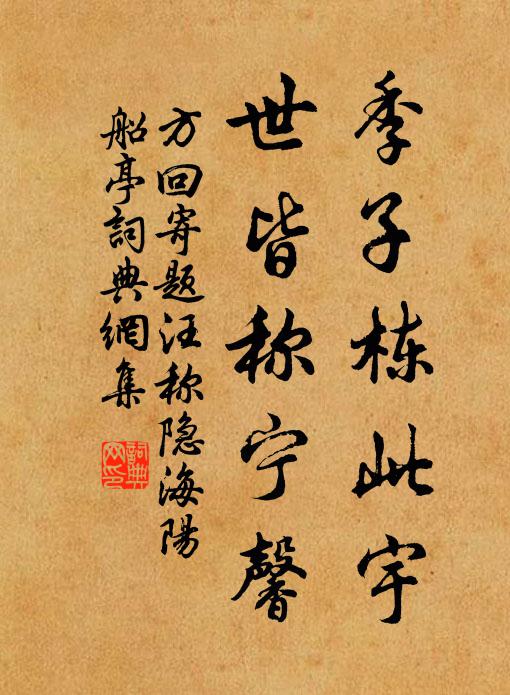 季子栋此宇
世皆称宁馨
方回寄题汪称隐海陽
船亭詞典網集
詞典
网印